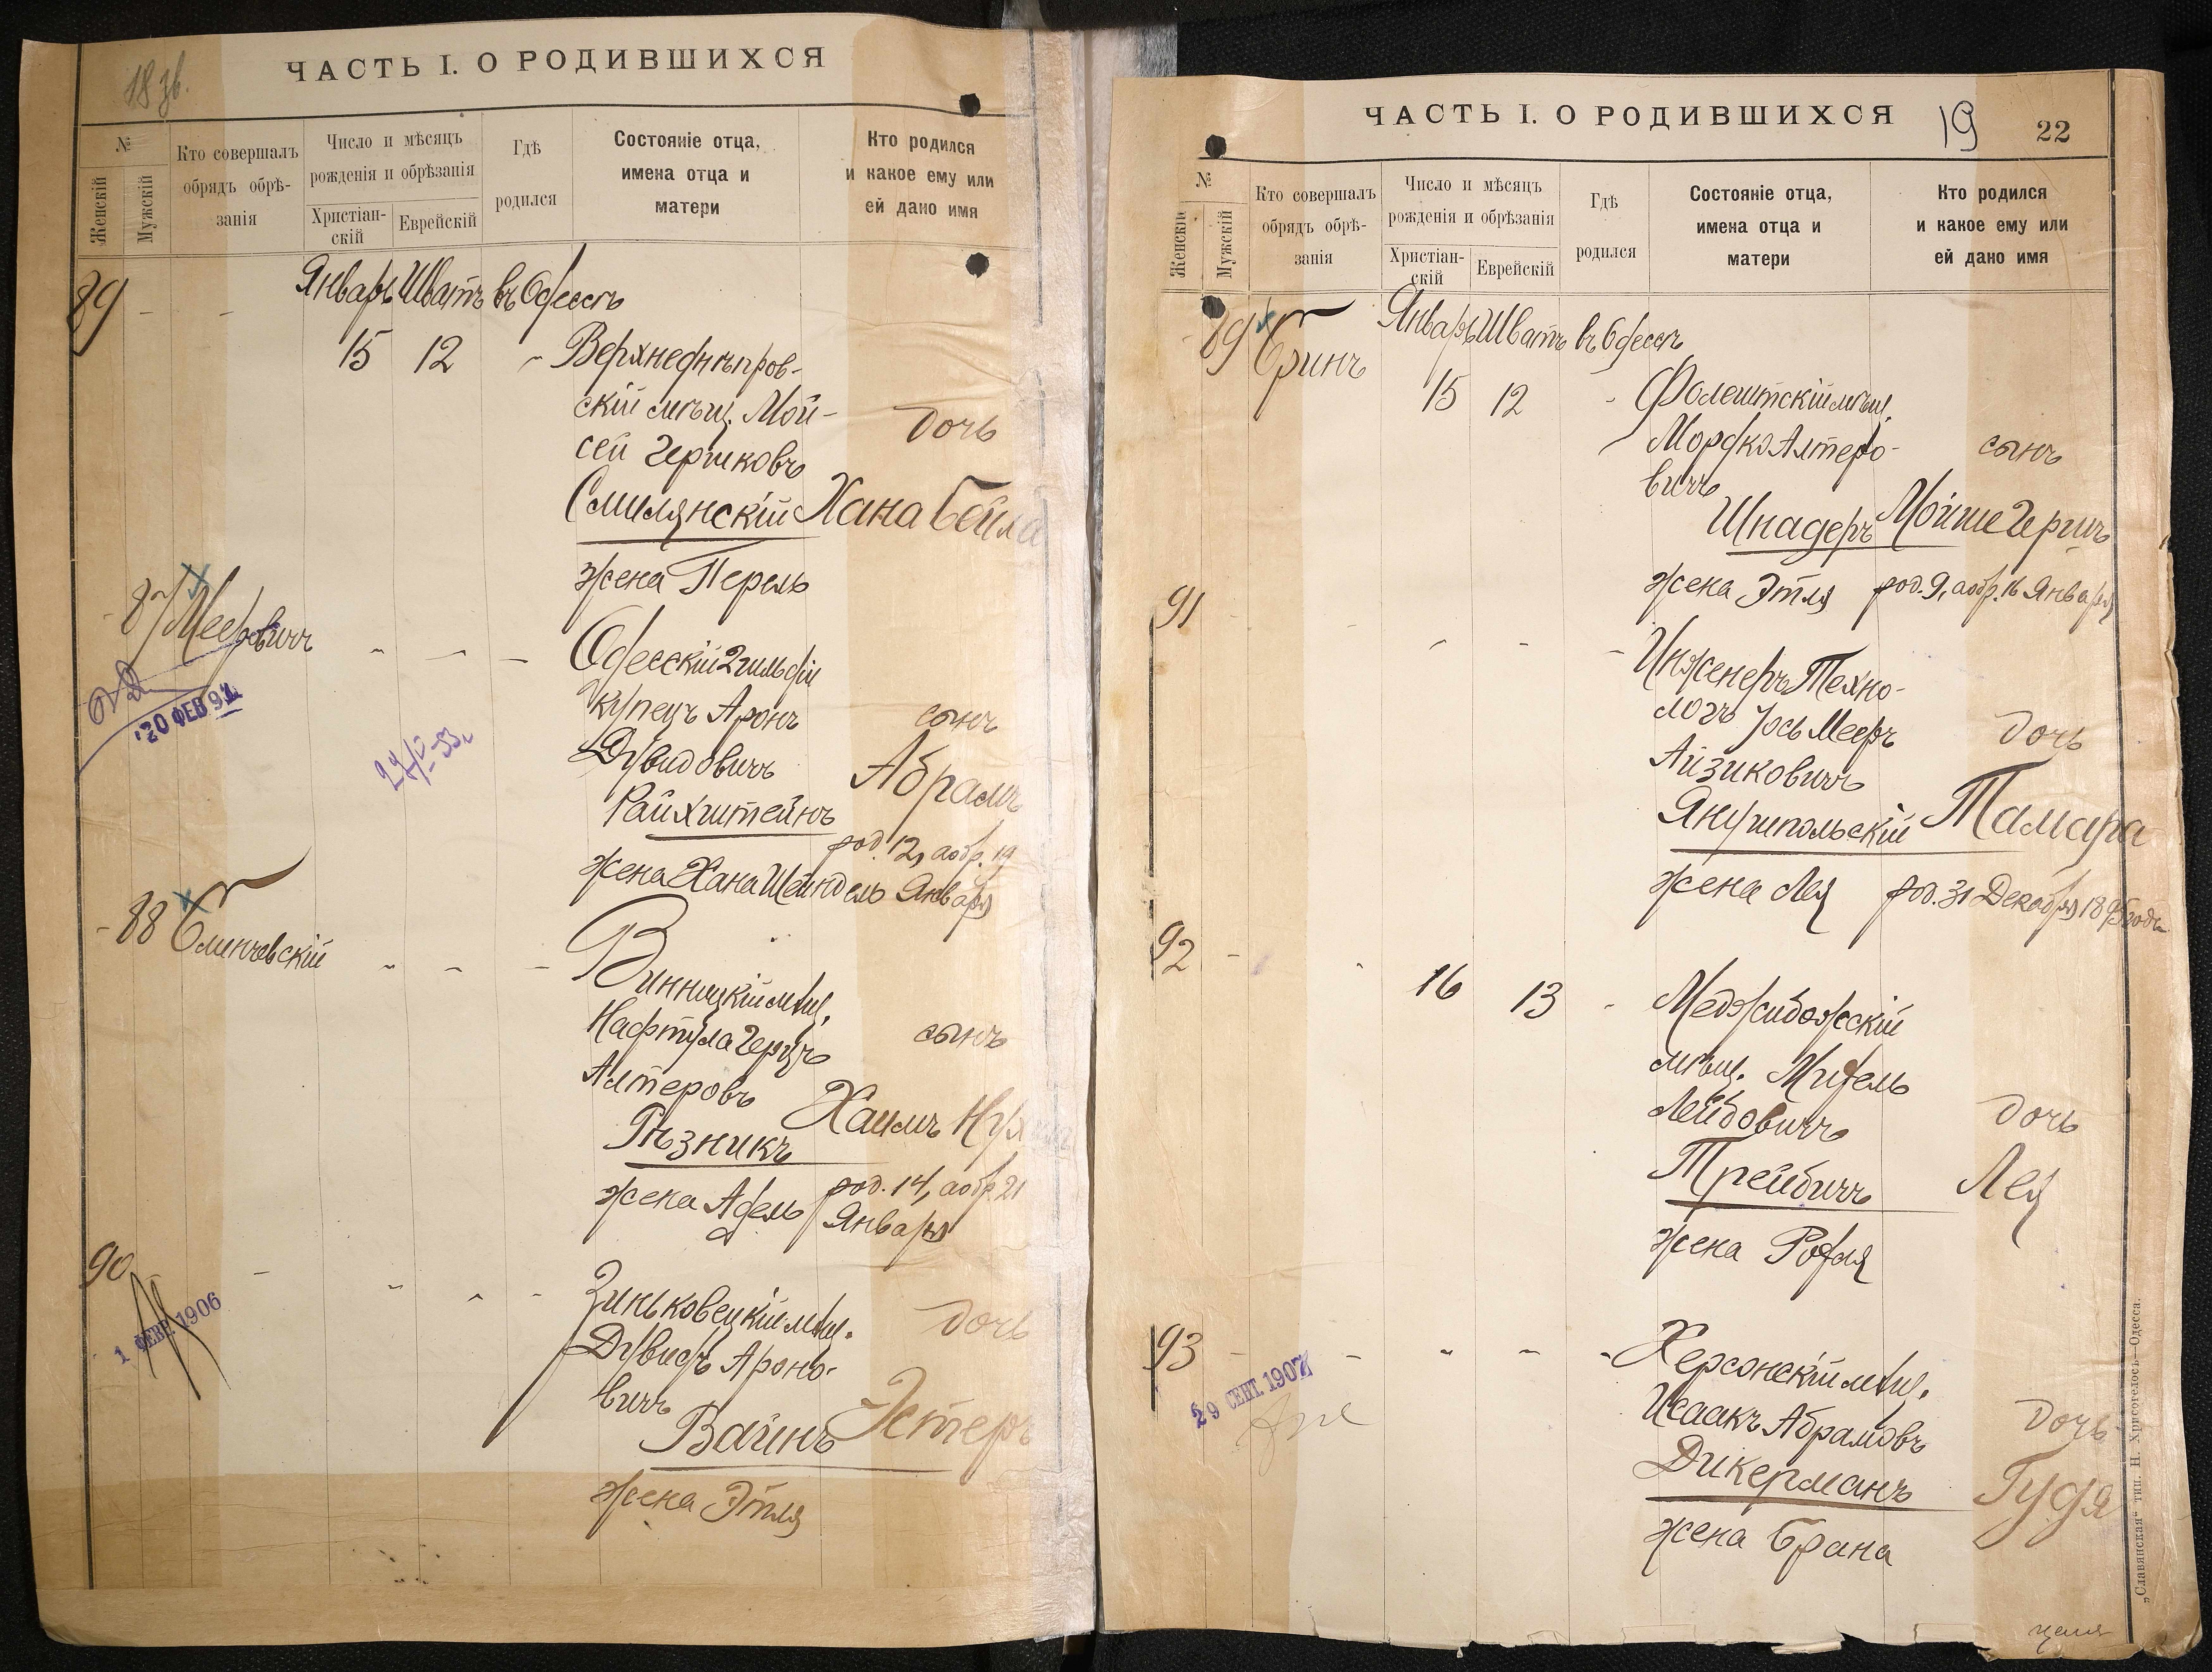 18 зв.
ЧАСТЬ I. О РОДИВШИХСЯ
№
Женскій
Мужскій
Кто совершалъ
обрядъ обрѣ-
занія
Число и мѣсяцъ
рожденія и обрѣзанія
Христіан-
скій
Еврейскій
Гдѣ
родился
Состояніе отца,
имена отца и
матери
Кто родился
и какое ему или
ей дано имя
89 - - Январь Шватъ въ Одессѣ
15 12 " Верхнеднѣпров-
скій мѣщ. Мой-
сей Гершковъ
Смилянскій
жена Перель
дочь
Хана Бейла
87 Мееровичъ
20 ФЕВ 91
Одесскій 2 гильдіи
купецъ Аронъ
Дувидовичъ
Райхштейнъ
жена Хана Шейндель
сынъ
Абрамъ
род. 12, а обр. 19
Января
88 Олинчевскій
Винницкій мѣщ.
Нафтула Герцъ
Алтеровъ
Рѣзникъ
жена Адель
сынъ
Хаимъ
род. 14, а обр. 21
Января
90
1 ФЕВР. 1906
Зиньковецкій мѣщ.
Дувидъ Ароно-
вичъ
Вайнъ
жена Этля
дочь
Эстеръ
ЧАСТЬ I. О РОДИВШИХСЯ
19 22
№
Женскій
Мужскій
Кто совершалъ
обрядъ обрѣ-
занія
Число и мѣсяцъ
рожденія и обрѣзанія
Христіан-
скій
Еврейскій
Гдѣ
родился
Состояніе отца,
имена отца и
матери
Кто родился
и какое ему или
ей дано имя
89 Бринъ Январь Шватъ въ Одессѣ
15 12 " Фолештскій мѣщ.
Мордко Алтеро-
вичъ
Шнадеръ
жена Этля
сынъ
Мойше Гершъ
род. 9, а обр. 16 Января
91
Инженеръ Техно-
логъ Іось Мееръ
Айзиковичъ
Янушпольскій
жена Лея
дочь
Тамара
род. 31 Декабря 1895 года
92 - 16 13 - Меджибожскій
мѣщ.
Лейбовичъ
Трейбичъ
жена
дочь
Лея
93
29 СЕНТ. 1907
Херсонскій мѣщ.
Исаакъ Абрамовъ
Дикерманъ
жена Брана
дочь
Гудя
„Славянская“ тип. Н. Хрисогелосъ—Одесса.